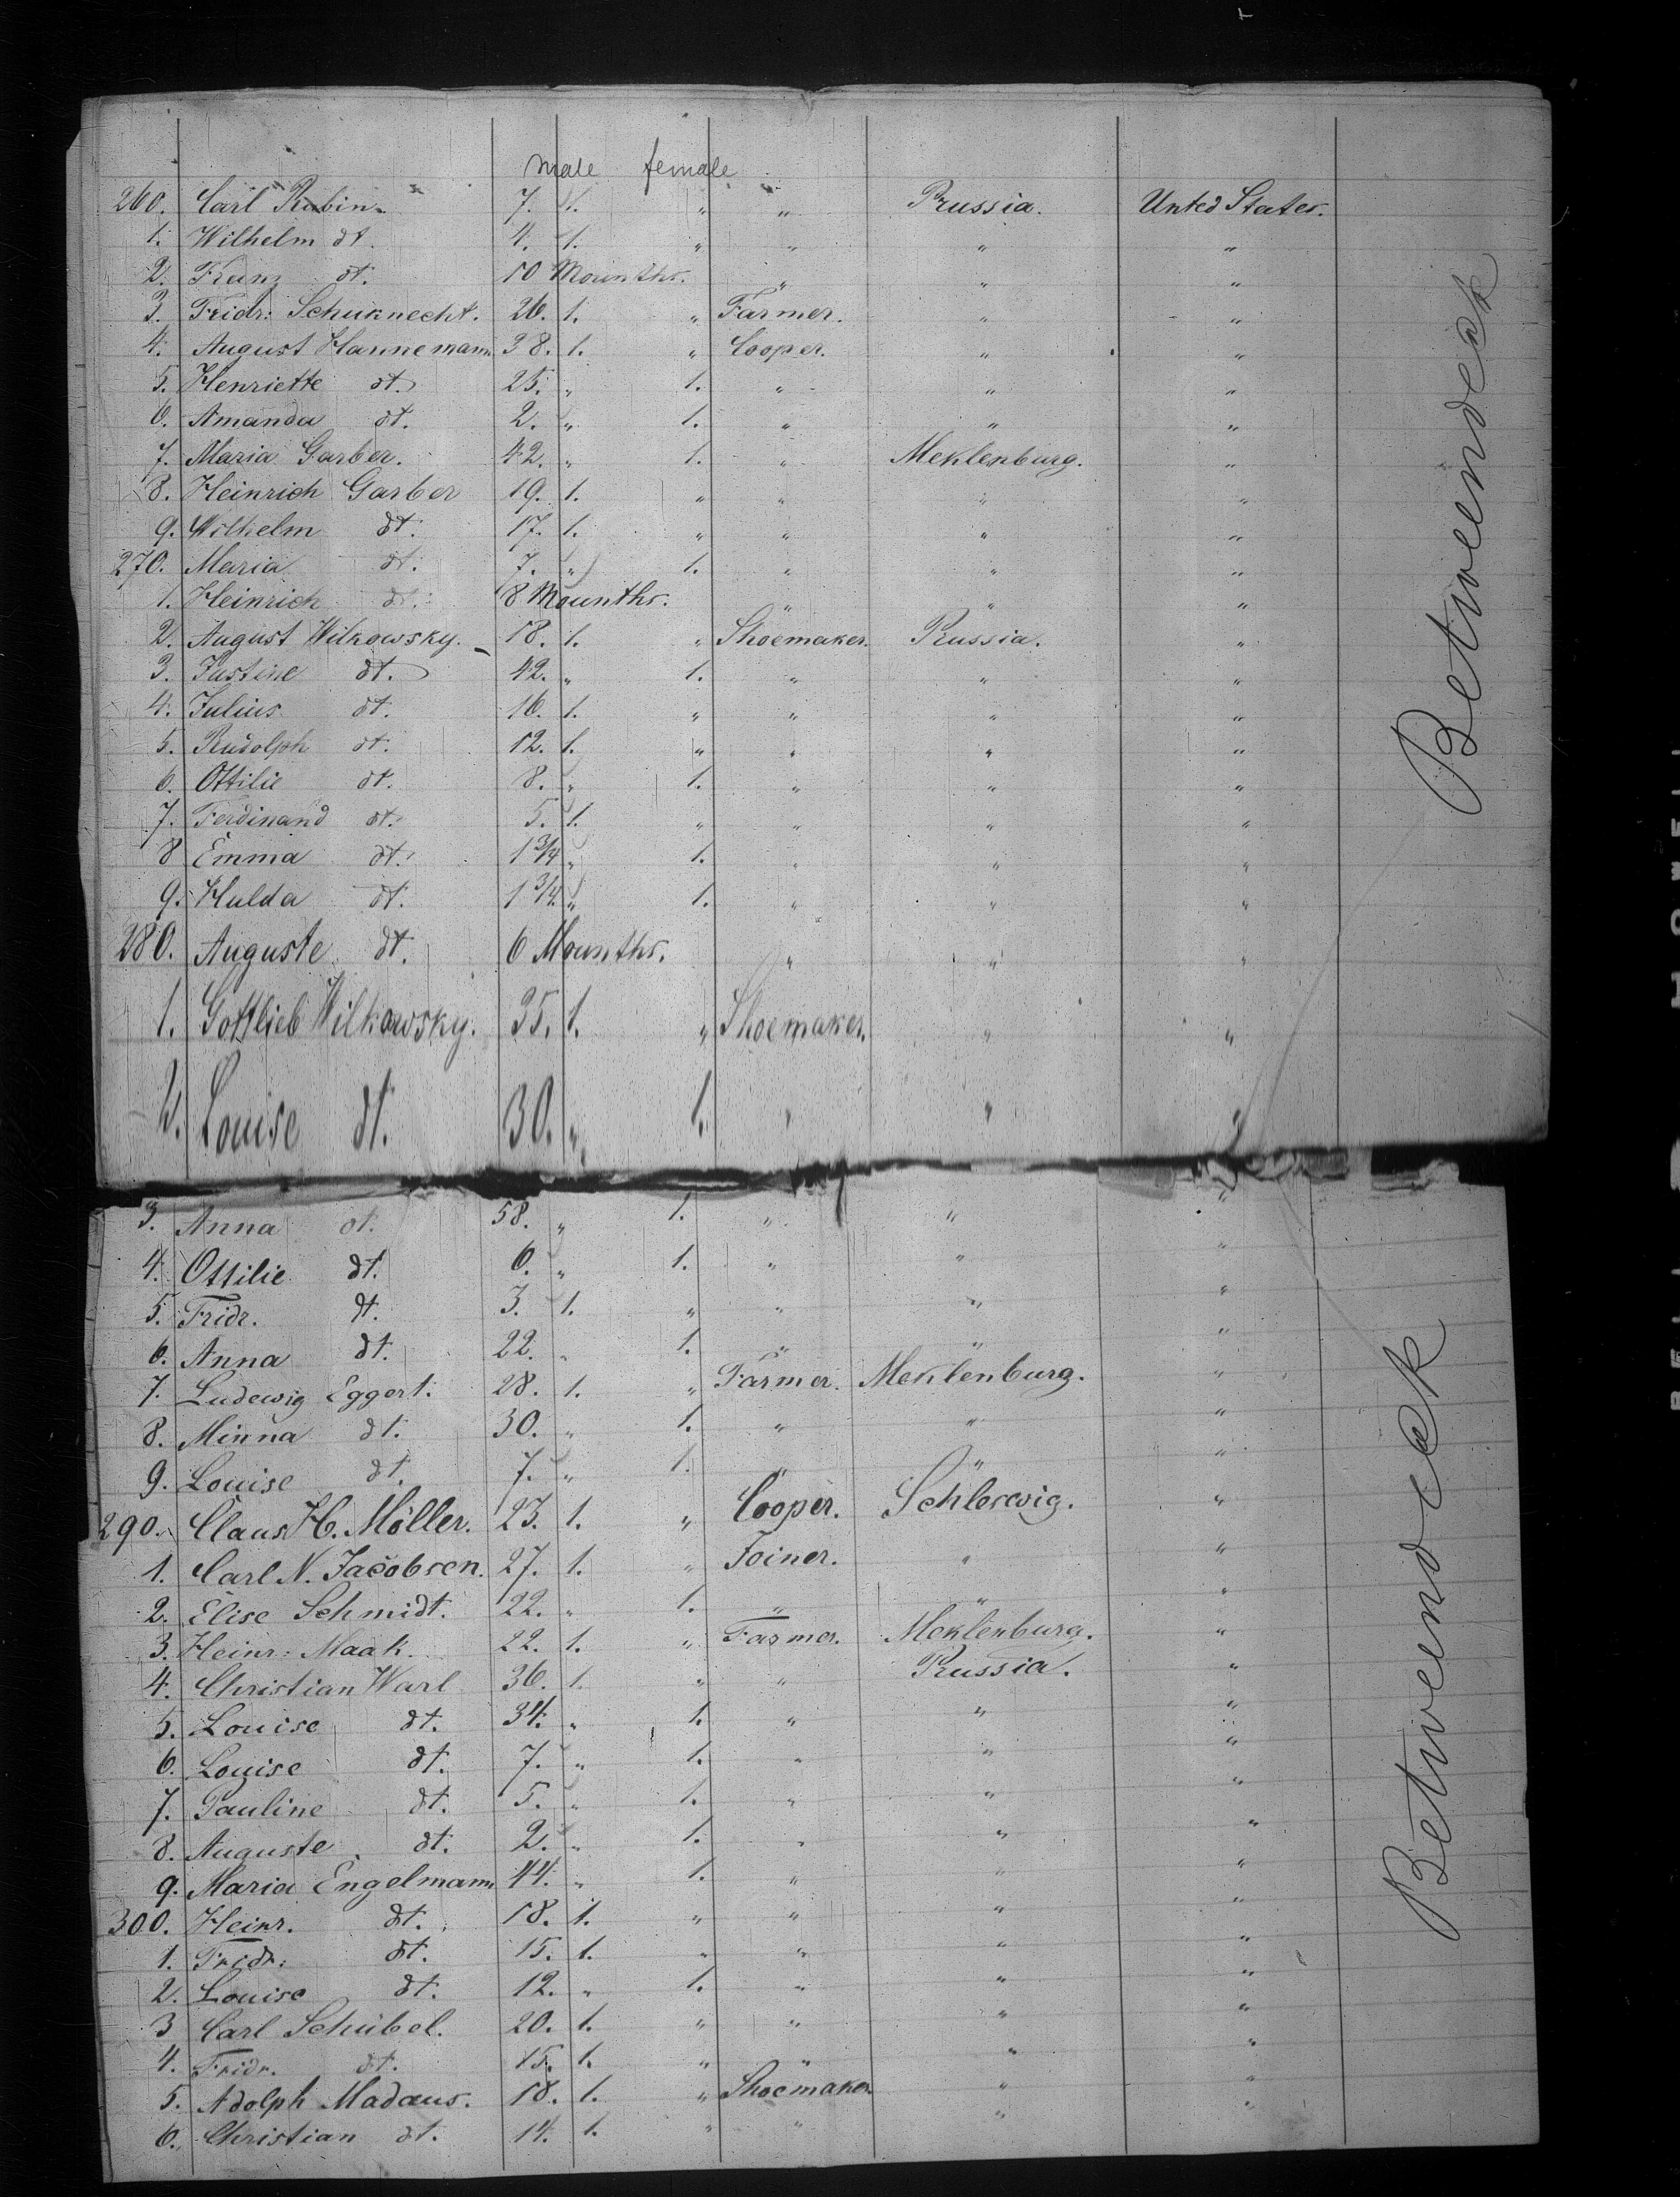 male female
260. Carl Rubin. 7. 1. " " Prussia. Unted States.
1. Wilhelm dt. 4. 1. " " " "
2. Franz dt. 10 Mounths. " " "
3. Fridr: Schuknecht. 26. 1. " Farmer. " "
4. August Hannemann 38. 1. " Cooper. " "
5. Henriette dt. 25. " 1. " " "
6. Amanda dt. 2. " 1. " " "
7. Maria Garber. 42. " 1. " Meklenburg. "
8. Heinrich Garber 19. 1. " " " "
9. Wilhelm dt. 17. 1. " " " "
270. Maria dt. 7. " 1. " " "
1. Heinrich dt. 8 Mounths. " " "
2. August Wilkowsky. 18. 1. " Shoemaker. Prussia. "
3. Justine dt. 42. " 1. " " "
4. Julius dt. 16. 1. " " " "
5. Rudolph dt. 12. 1. " " " "
6. Ottilie dt. 8. " 1. " " "
7. Ferdinand dt. 5. 1. " " " "
8 Emma dt. 1 3/4 " 1. " " "
9. Hulda dt. 1 3/4. " 1. " " "
280. Auguste dt. 6 Mounths. " " "
1. Gottlieb Wilkowsky. 35. 1. " Shoemaker. " "
2. Louise dt. 30. " 1. " " "
3. Anna dt. 58. " 1. " " "
4. Ottilie dt. 6. " 1. " " "
5. Fridr. dt. 3. 1. " " " "
6. Anna dt. 22. " 1. " " "
7. Ludewig Eggert. 28. 1. " Farmer. Meklenburg. "
8. Minna dt. 30. " 1. " " "
9. Louise dt. 7. " 1. " " "
290. Claus H. Möller. 23. 1. " Cooper. Schleswig. "
1. Carl N. Jacobsen. 27. 1. " Joiner. " "
2. Elise Schmidt. 22. " 1. " " "
3. Heinr: Maak. 22. 1. " Farmer. Meklenburg. "
4. Christian Warl 36. 1. " " Prussia. "
5. Louise dt. 34. " 1. " " "
6. Louise dt. 7. " 1. " " "
7. Pauline dt. 5. " 1. " " "
8. Auguste dt. 2. " 1. " " "
9. Maria Engelmann 44. " 1. " " "
300. Heinr. dt. 18. 1. " " " "
1. Fridr: dt. 15. 1. " " " "
2. Louise dt. 12. " 1. " " "
3 Carl Schübel. 20. 1. " " " "
4. Fridr. dt. 15. 1. " " " "
5. Adolph Madaus. 18. 1. " Shoemaker. " "
6. Christian dt. 14. 1. " " "
Betweendeck
Betweendeck